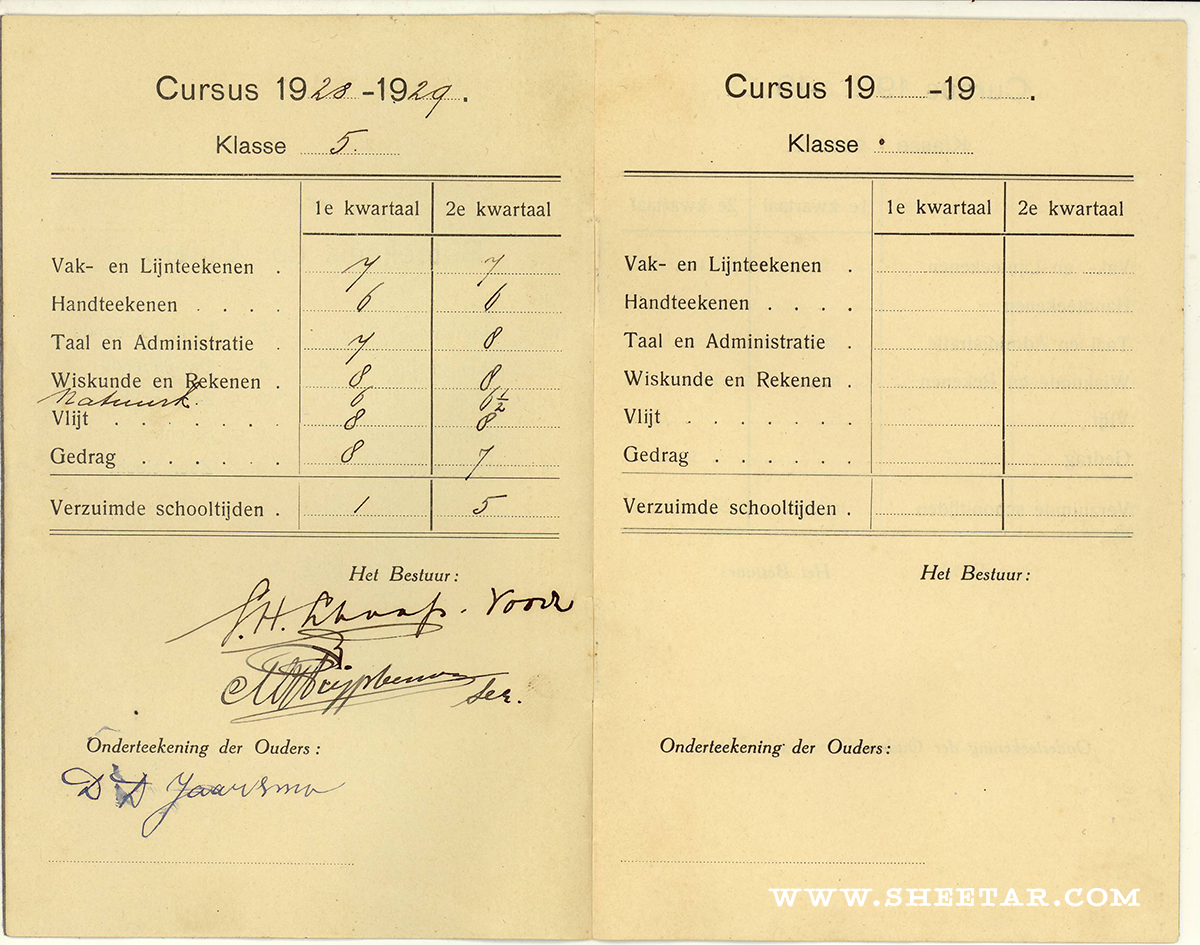 Cursus 1928-1929.
Klasse 5.
1e kwartaal 2e kwartaal
Vak- en Lijnteekenen . 7 7
Handteekenen . . . . 6 6
Taal en Administratie . 7 8
Wiskunde en Rekenen . 8 8
Natuurk. 6 6½
Vlijt . . . . . . . 8 8
Gedrag . . . . . . 8 7
Verzuimde schooltijden . 1 5
Het Bestuur:
S. H. Schaap. Voorz
Sec.
Onderteekening der Ouders:
D. D Jaarsma
Cursus 19 -19 .
Klasse
1e kwartaal 2e kwartaal
Vak- en Lijnteekenen .
Handteekenen . . . .
Taal en Administratie .
Wiskunde en Rekenen .
Vlijt . . . . . . .
Gedrag . . . . . .
Verzuimde schooltijden .
Het Bestuur:
Onderteekening der Ouders:
WWW.SHEETAR.COM